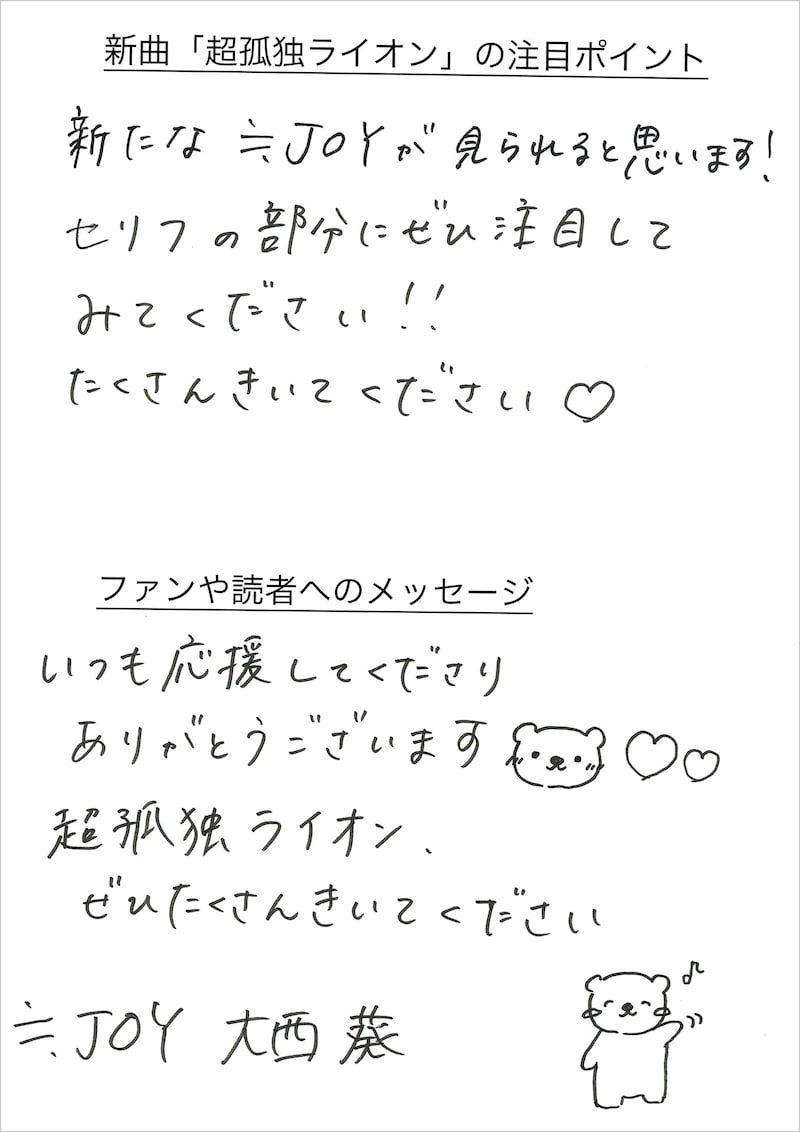 新曲「超孤独ライオン」の注目ポイント
新たな ≒JOYが見られると思います!
セリフの部分にぜひ注目して
みてください!!
たくさんきいてください♡
ファンや読者へのメッセージ
いつも応援してくださり
ありがとうございます♡♡
超孤独ライオン、
ぜひたくさんきいてください
≒JOY 大西葵